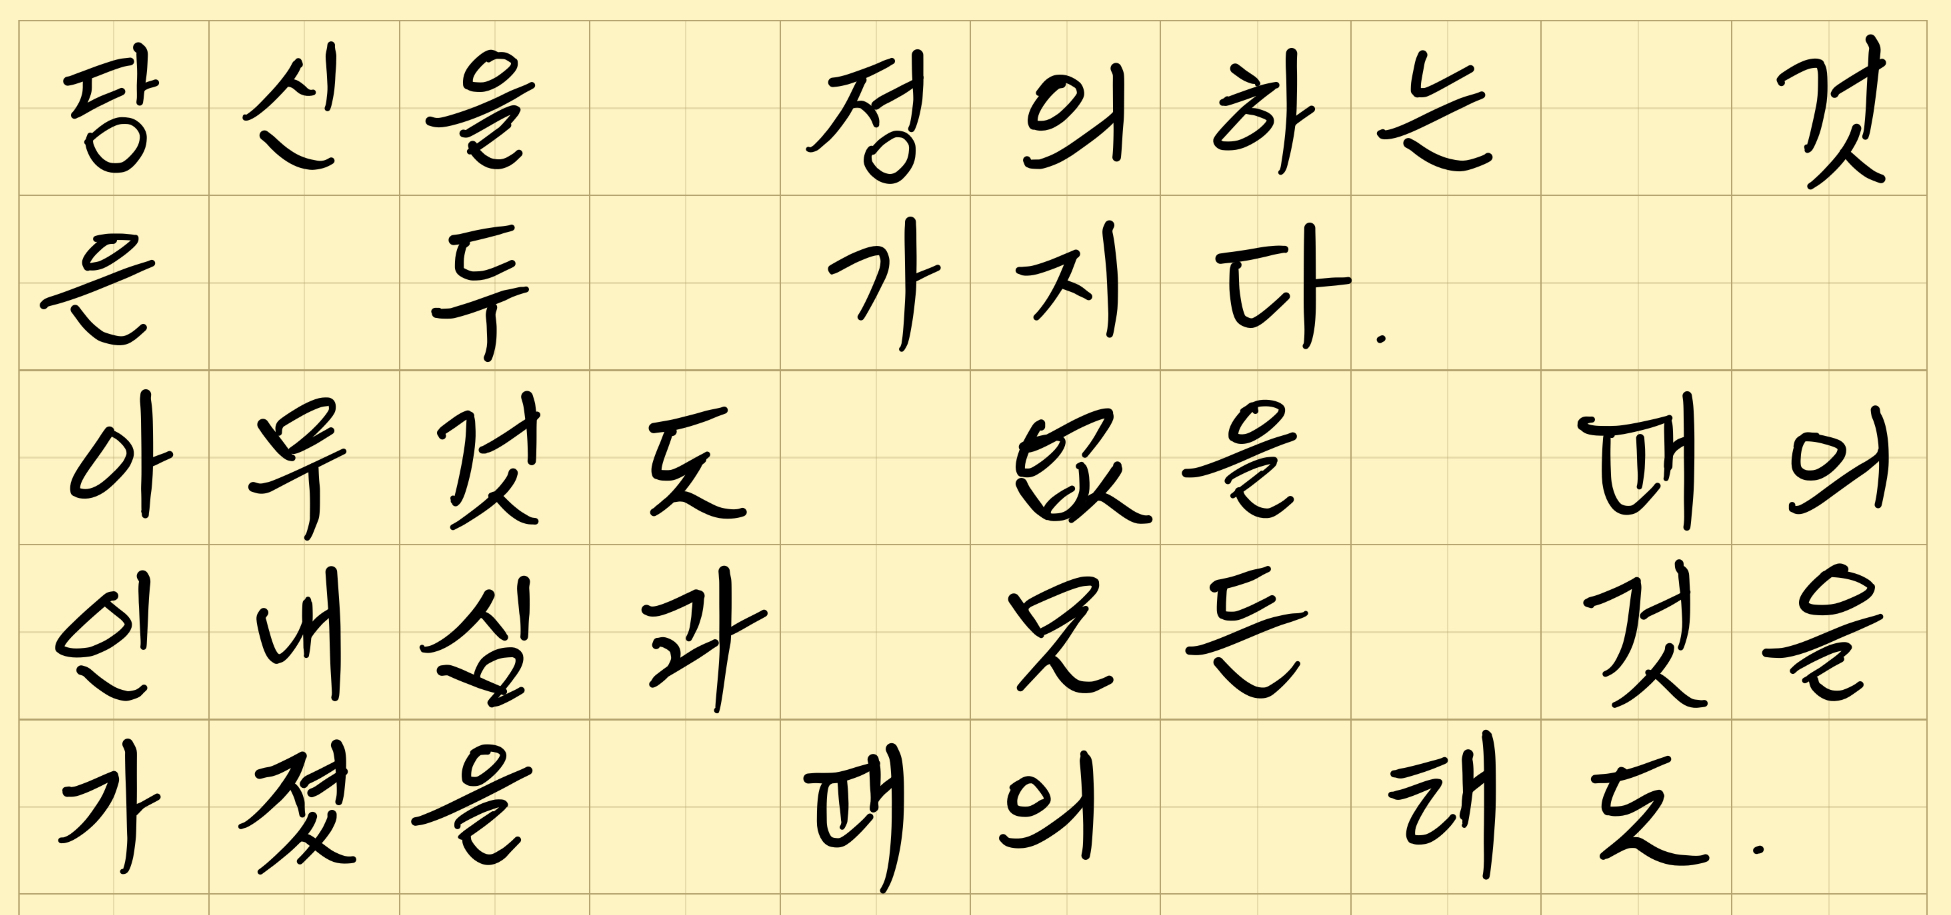 당신을 정의하는 것
은 두 가지다.
아무것도 없을 때의
인내심과 모든 것을
가졌을 때의 태도.